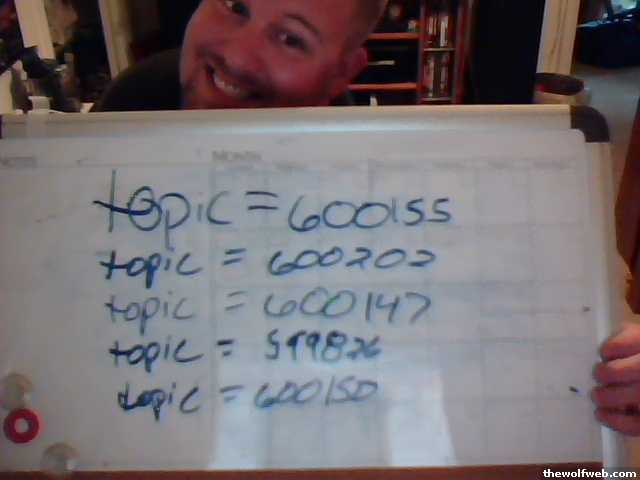 MONTH
topic = 600155
topic = 600202
topic = 600147
topic = 599826
topic = 600150
thewolfweb.com